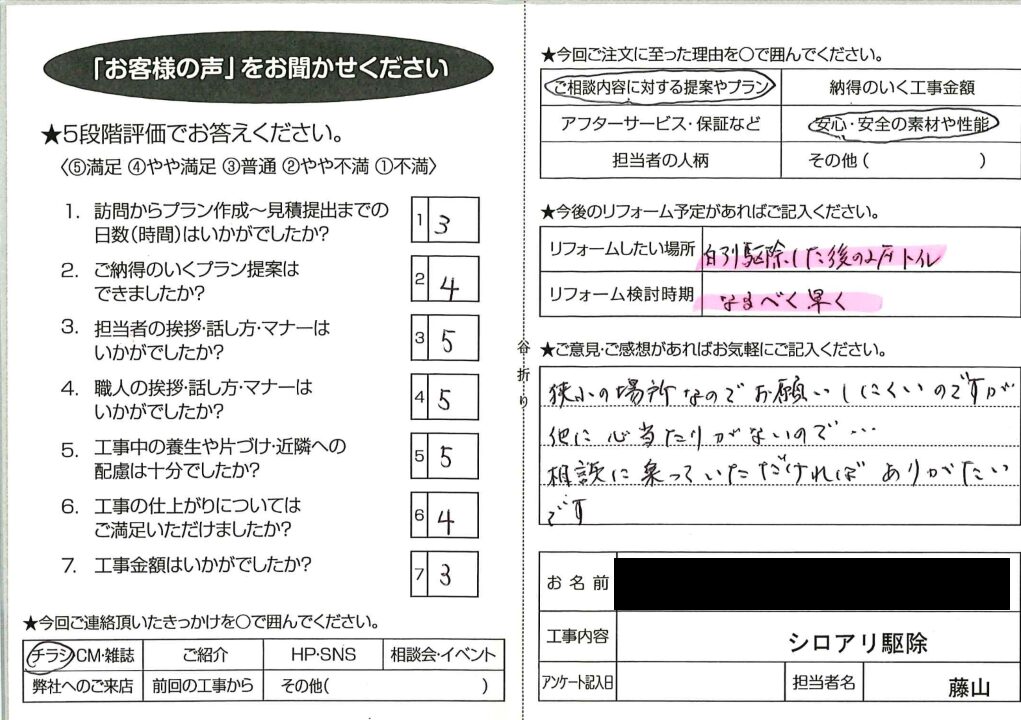 「お客様の声」をお聞かせください
★5段階評価でお答えください。
〈⑤満足 ④やや満足 ③普通 ②やや不満 ①不満〉
1. 訪問からプラン作成〜見積提出までの
日数(時間)はいかがでしたか?
1 3
2. ご納得のいくプラン提案は
できましたか?
2 4
3. 担当者の挨拶・話し方・マナーは
いかがでしたか?
3 5
4. 職人の挨拶・話し方・マナーは
いかがでしたか?
4 5
5. 工事中の養生や片づけ・近隣への
配慮は十分でしたか?
5 5
6. 工事の仕上がりについては
ご満足いただけましたか?
6 4
7. 工事金額はいかがでしたか?
7 3
★今回ご連絡頂いたきっかけを○で囲んでください。
チラシ・CM・雑誌 ご紹介 HP・SNS 相談会・イベント
弊社へのご来店 前回の工事から その他( )
谷折り
★今回ご注文に至った理由を○で囲んでください。
ご相談内容に対する提案やプラン 納得のいく工事金額
アフターサービス・保証など 安心・安全の素材や性能
担当者の人柄 その他( )
★今後のリフォーム予定があればご記入ください。
リフォームしたい場所 白引駆除した後の2戸トイレ
リフォーム検討時期 なるべく早く
★ご意見・ご感想があればお気軽にご記入ください。
狭小の場所なのでお願いしにくいのですが
他に心当たりがないので…
相談に乗っていただければありがたい
です
お名前
工事内容 シロアリ駆除
アンケート記入日 担当者名 藤山